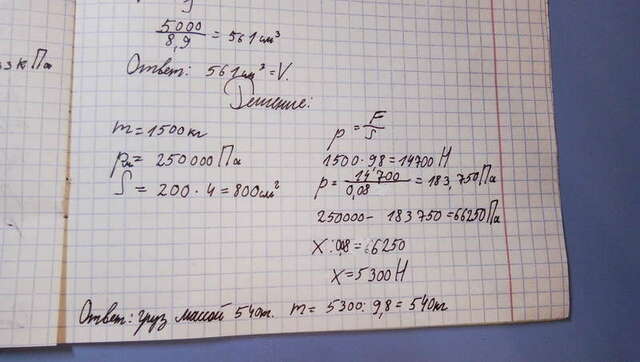 5000
8,9 = 561 см³
Ответ: 561 см³ = V.
Решение:
m = 1500 кг
pм = 250000 Па
S = 200 · 4 = 800 см²
p = F
S
1500 · 9,8 = 14700 Н
p = 14'700
0,08 = 183,750 Па
250000 - 183750 = 66250 Па
X : 0,8 = 66250
X = 5300 Н
Ответ: груз массой 540кг. m = 5300 : 9,8 = 540 кг
кПа